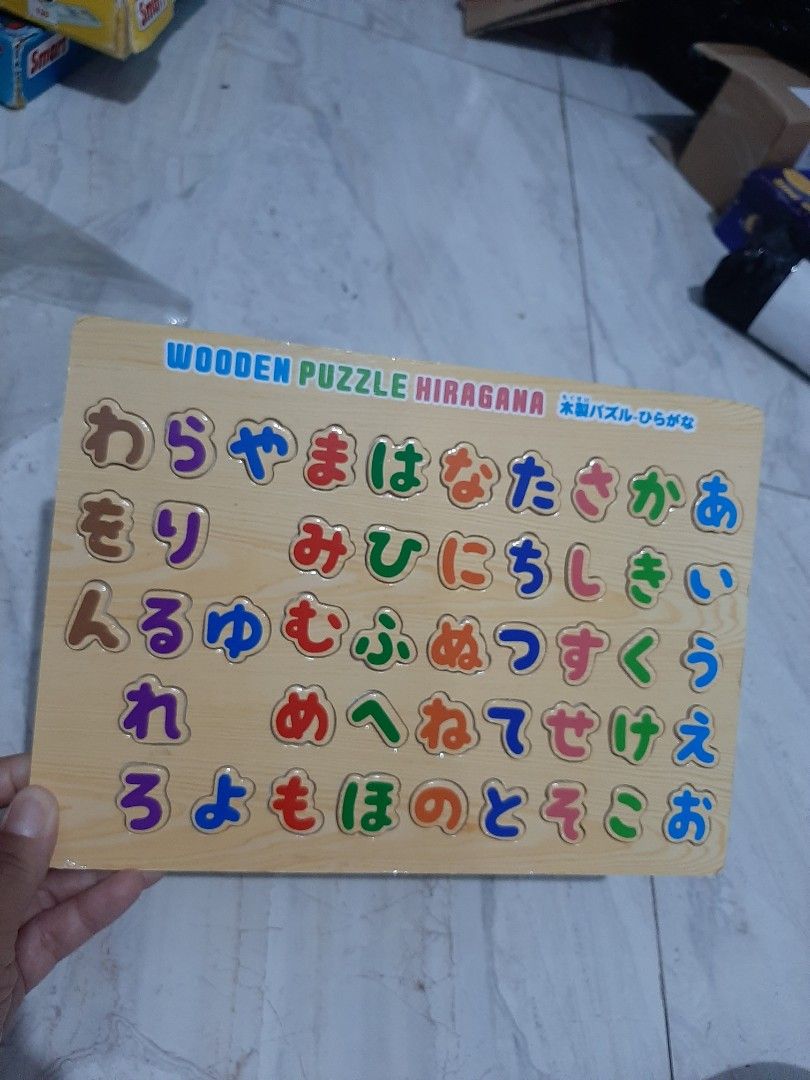 Smart
Smart
WOODEN PUZZLE HIRAGANA 木製パズル-ひらがな
わ ら や ま は な た さ か あ
を り み ひ に ち し き い
ん る ゆ む ふ ぬ つ す く う
れ め へ ね て せ け え
ろ よ も ほ の と そ こ お